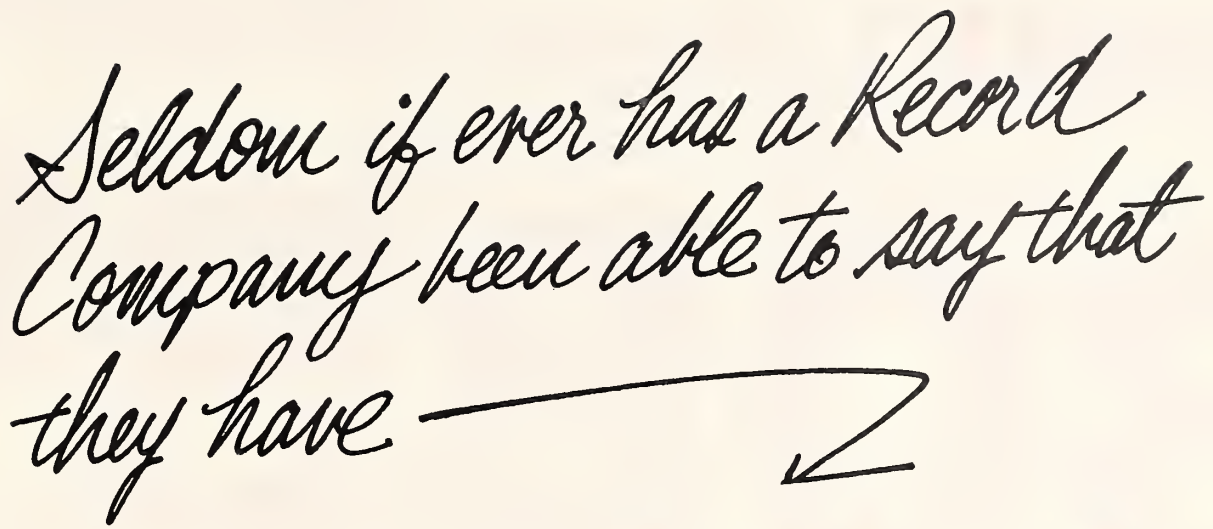 Seldom if ever has a Record
Company been able to say that
they have